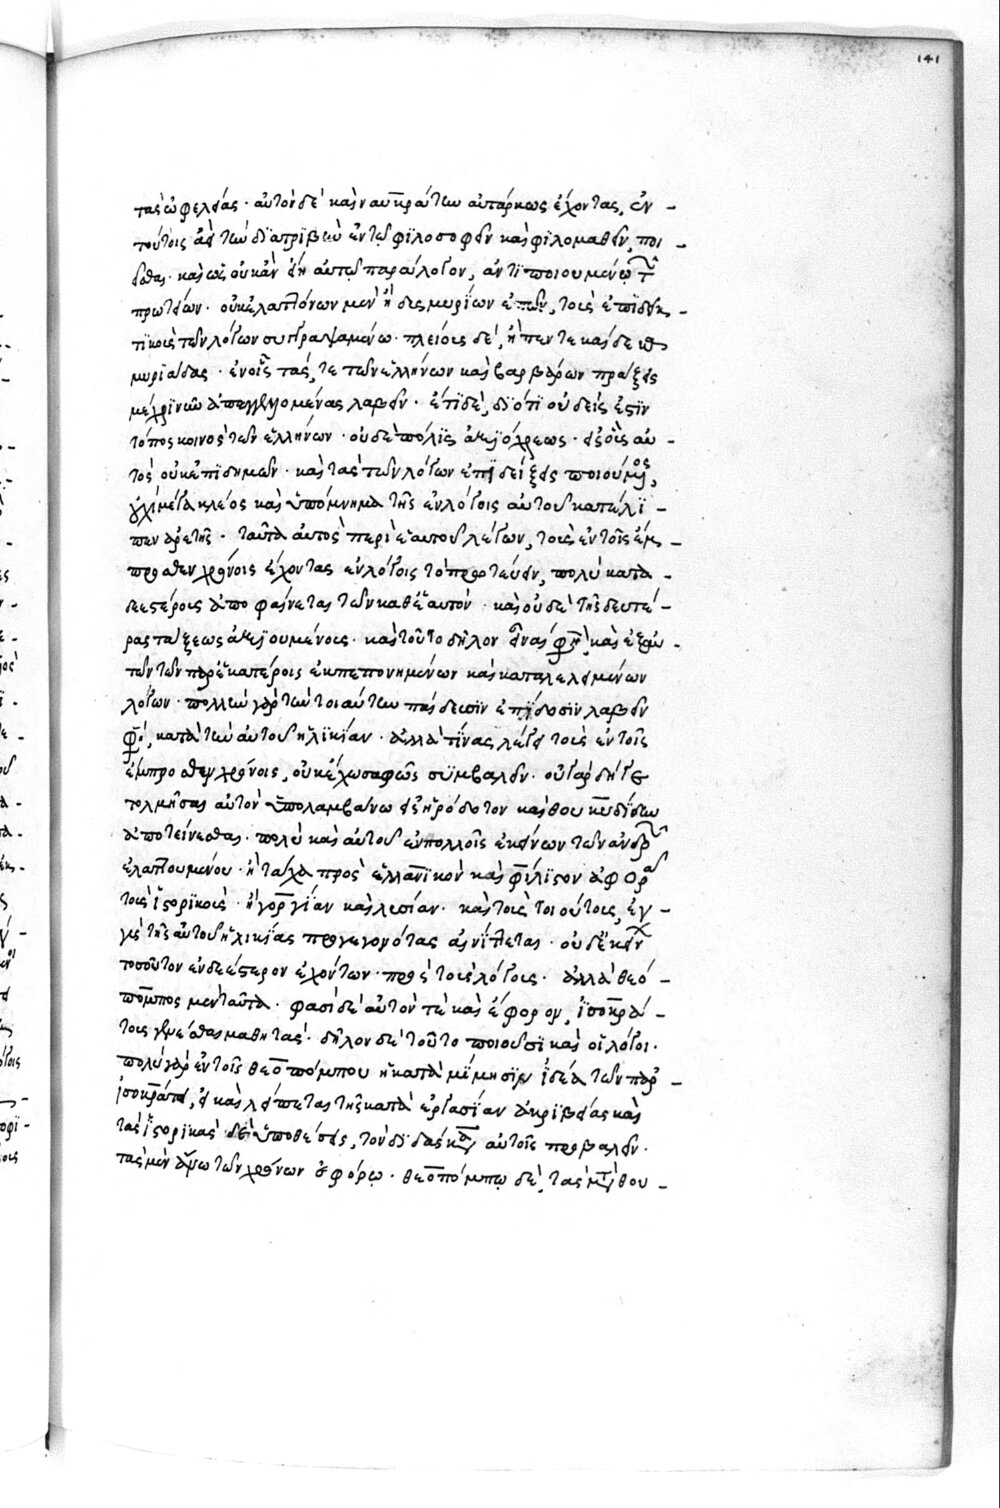 141
τὰς ὠφελείας · αὐτὸν δὲ καὶ ναυκράτην αὐτάρκως ἔχοντας, ἐν –
τούτοις ἀεὶ τὴν διατριβὴν ἐν τῷ φιλοσοφεῖν καὶ φιλομαθεῖν, ποι –
εῖσθαι · καὶ ὡς οὐκ ἂν εἴη αὐτῷ παράλογον, ἀντιποιουμένῳ τ̑
πρωτείων · οὐκ ἐλαττόνων μὲν ἢ δισμυρίων ἐπῶν, τοὺς ἐπιδεικ –
τικοὺς τῶν λόγων συγγραψαμένῳ · πλείους δὲ, ἢ πεντεκαίδεκα
μυριάδας · ἐν οἷς τάς, τε τῶν ἑλλήνων καὶ βαρβάρων πράξεις
μέχρι νῦν ἀπαγγελλομένας λαβεῖν · ἔτι δὲ, διότι οὐδείς ἐστιν
τόπος κοινὸς τῶν ἑλλήνων · οὐδὲ πόλις ἀξιόχρεως · εἰς οὓς αὐ –
τὸς οὐκ ἐπιδημῶν · καὶ τὰς τῶν λόγων ἐπιδείξεις ποιούμενος,
οὐχὶ μέγα κλέος καὶ ὑπόμνημα τῆς ἐν λόγοις αὐτοῦ κατέλι –
πεν ἀρετῆς · ταῦτα αὐτὸς περὶ ἑαυτοῦ λέγων, τοὺς ἐν τοῖς ἔμ –
προσθεν χρόνοις ἔχοντας ἐν λόγοις τὸ πρωτεύειν, πολὺ κατα –
δεεστέρους ἀποφαίνεται τῶν καθ' ἑαυτὸν · καὶ οὐδὲ τῆς δευτέ –
ρας τάξεως ἀξιουμένους · καὶ τοῦτο δῆλον εἶναί φησι, καὶ ἐξ αὐ –
τῶν τῶν παρ' ἑκατέροις ἐκπεπονημένων καὶ καταλελειμμένων
λόγων · πολλὴν γὰρ τὴν τοιαύτην παίδευσιν ἐπίδοσιν λαβεῖν
φησὶ, κατὰ τὴν αὐτοῦ ἡλικίαν · ἀλλὰ τίνας λέγει τοὺς ἐν τοῖς
ἔμπροσθεν χρόνοις, οὐκ ἔχω σαφῶς συμβαλεῖν · οὐ γὰρ δή γε
τολμῆσαι αὐτὸν ὑπολαμβάνω εἰς ἡρόδοτον καὶ θουκυδίδην
ἀποτείνεσθαι · πολὺ καὶ αὐτοῦ ἐν πολλοῖς ἐκείνων τῶν ἀνδρῶν
ἐλαττουμένου · ἢ τάχα πρὸς ἑλλάνικον καὶ φίλιστον ἀφορᾷ
τοὺς ἱστορικοὺς · ἢ γοργίαν καὶ λυσίαν · καὶ τοὺς τοιούτους, ἐγ –
γὺς τῆς αὐτοῦ ἡλικίας προγεγονότας αἰνίττεται · οὐδὲ κείν
τοσοῦτον ἐνδεέστερον ἐχόντων πρὸς τοὺς λόγους · ἀλλὰ θεό –
πομπος μὲν ταῦτα · φασὶ δὲ αὐτόν τε καὶ ἔφορον, ἰσοκρά –
τους γενέσθαι μαθητάς · δῆλον δὲ τοῦτο ποιοῦσι καὶ οἱ λόγοι ·
πολὺ γὰρ ἐν τοῖς θεοπόμπου ἡ κατὰ μίμησιν ἰδέα τῶν παρ' –
ἰσοκράτει, εἰ καὶ λείπεται τῆς κατὰ ἐργασίαν ἀκριβείας καὶ
τὰς ἱστορικὰς δὲ ὑποθέσεις, τὸν διδάσκαλον αὐτοῖς προβαλεῖν ·
τὰς μὲν ἄνω τῶν χρόνων ἐφόρῳ · θεοπόμπῳ δὲ, τὰς μετὰ θου –